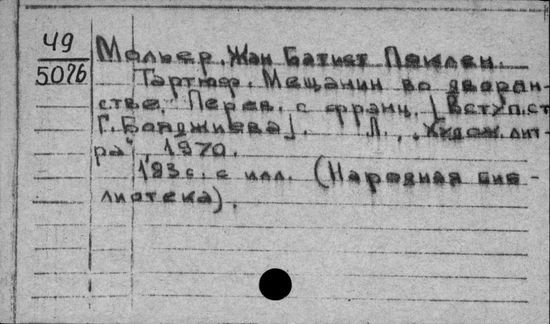 49
5026
Мольер, Жан Батист Поклен.
Тартюф. Мещанин во дворян-
стве. Перев. с франц. [Вступ. ст.
Г. Бояджиева]. Л., "Худож. лит-
ра", 1970.
193 с. с илл. (Народная биб-
лиотека).